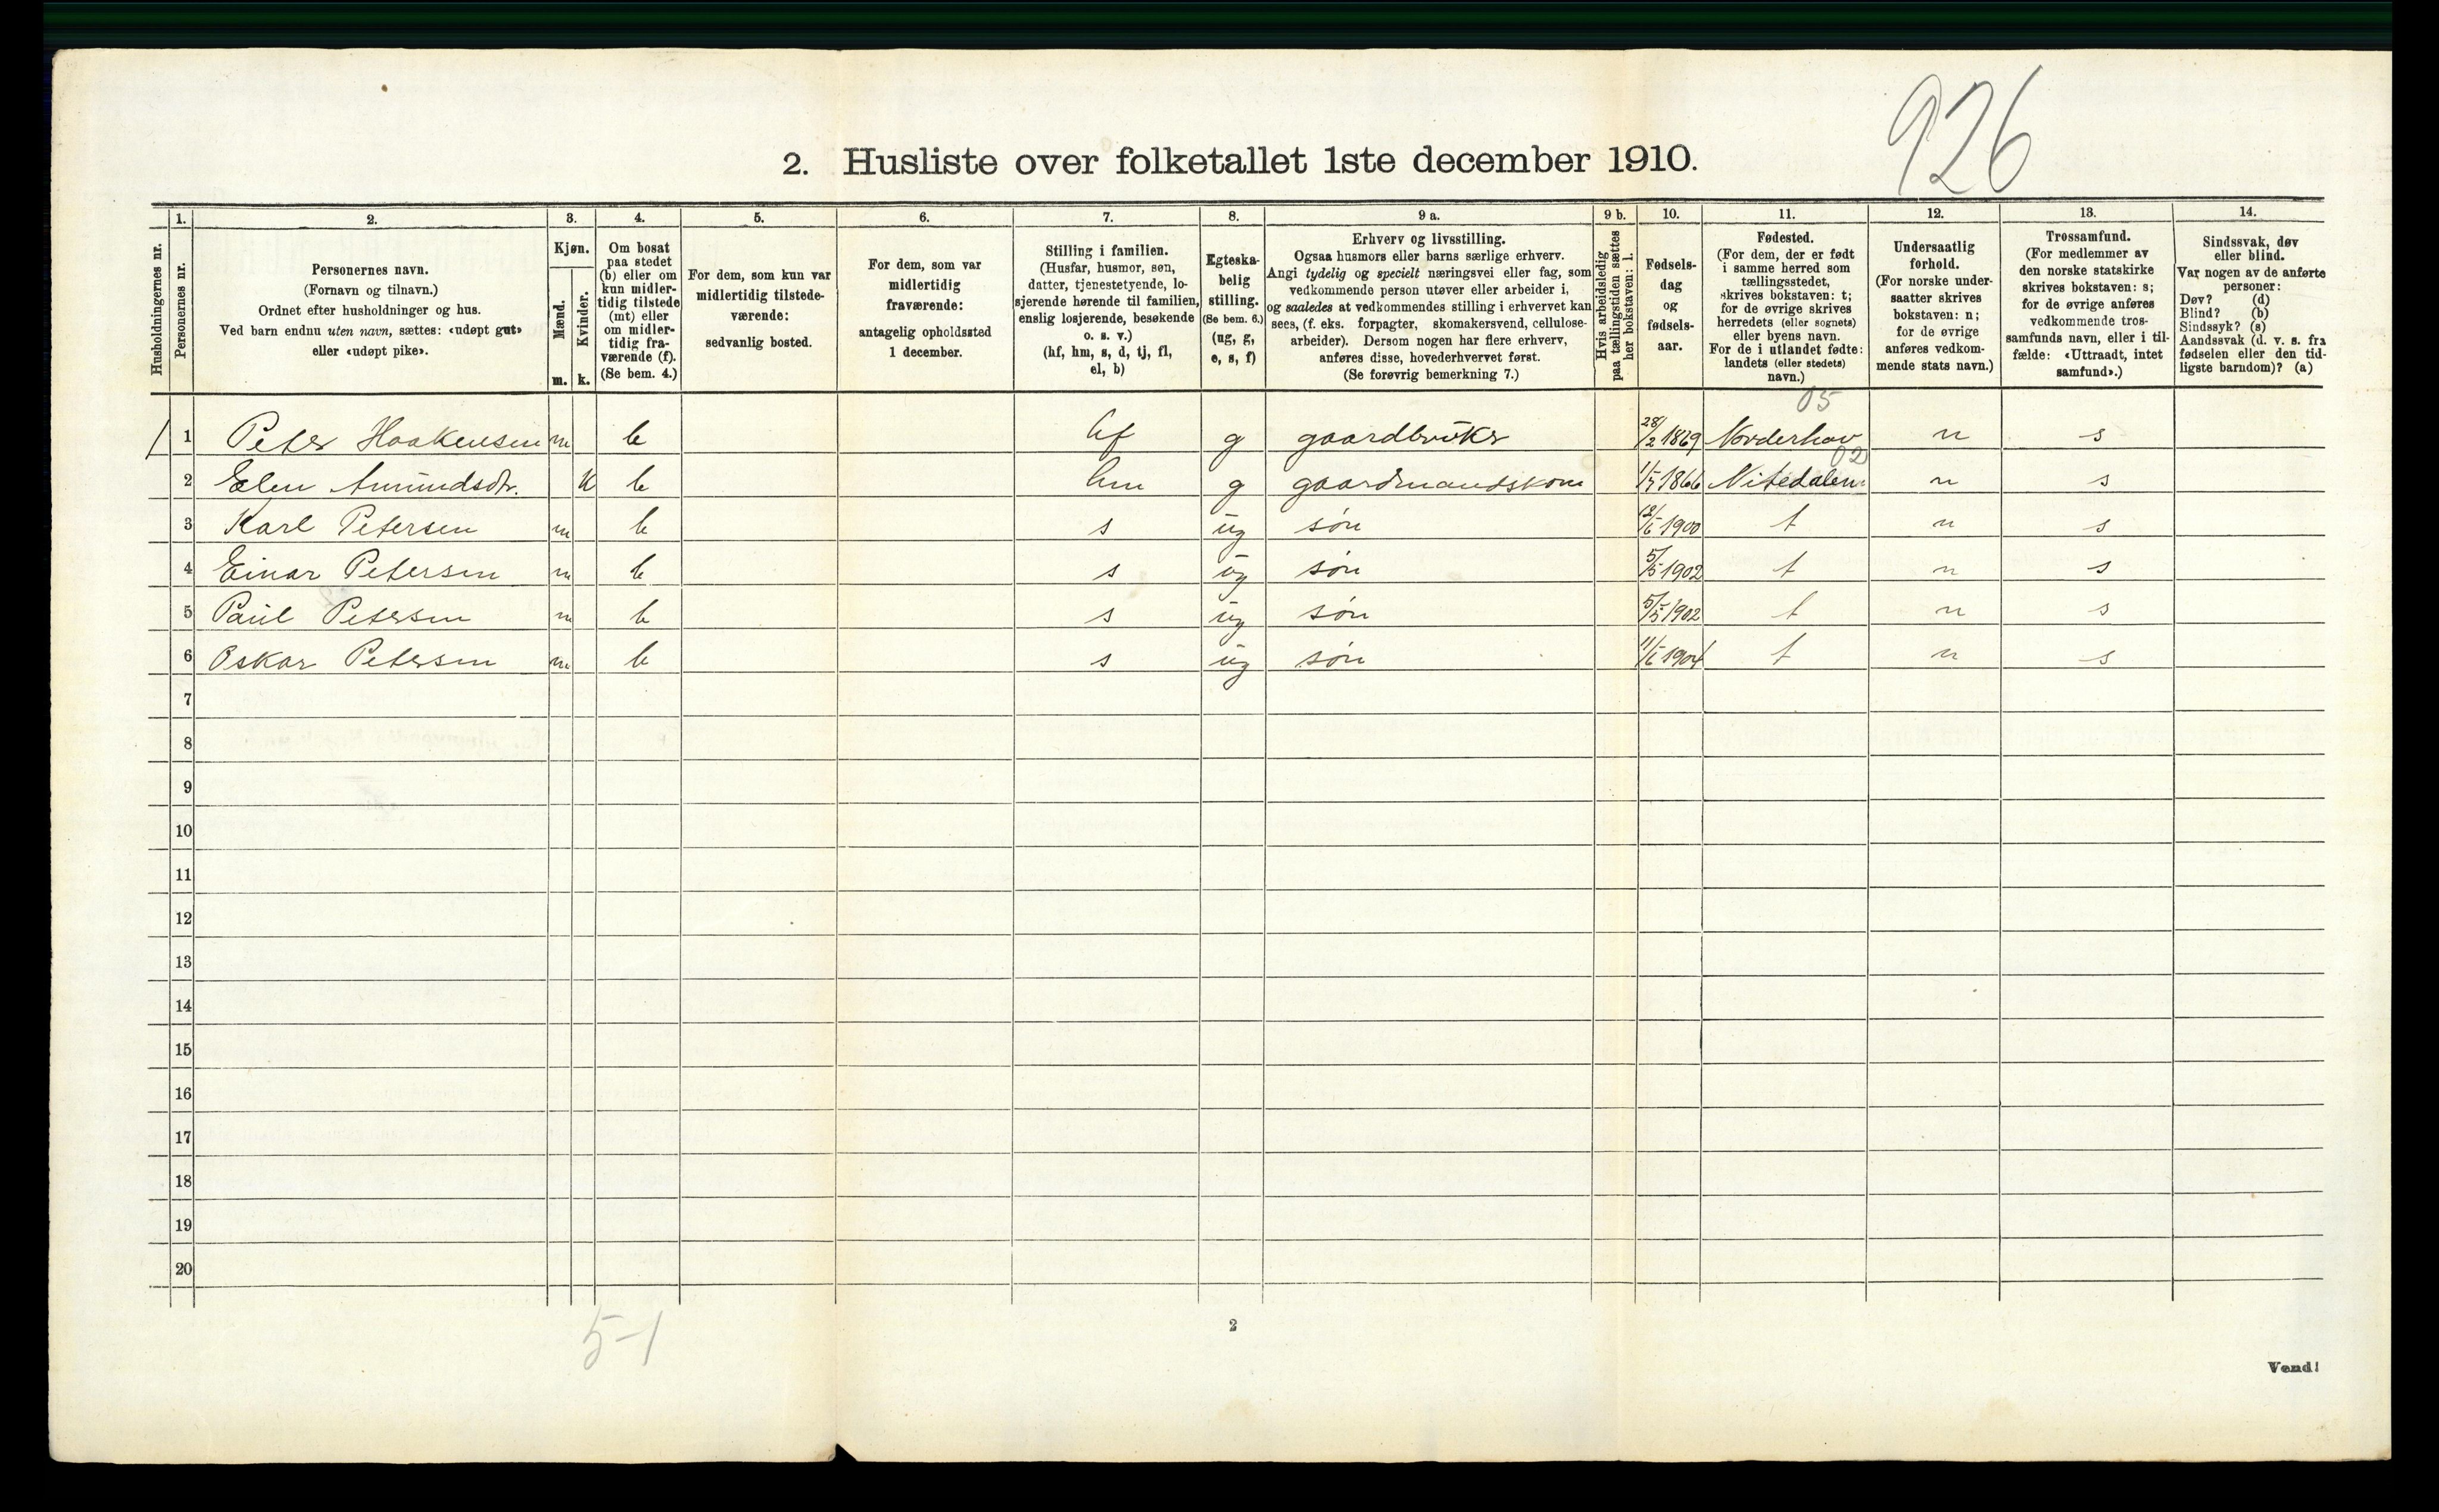 926
2. Husliste over folketallet 1ste december 1910.
Husholdningernes nr.
1.
Personernes nr.
2.
Personernes navn.
(Fornavn og tilnavn.)
Ordnet efter husholdninger og hus.
Ved barn endnu uten navn, sættes: «udøpt gut»
eller «udøpt pike».
3.
Kjøn.
Mænd.
Kvinder.
m. k.
4.
Om bosat
paa stedet
(b) eller om
kun midler-
tidig tilstede
(mt) eller
om midler-
tidig fra-
værende (f).
(Se bem. 4.)
5.
For dem, som kun var
midlertidig tilstede-
værende:
sedvanlig bosted.
6.
For dem, som var
midlertidig
fraværende:
antagelig opholdssted
1 december.
7.
Stilling i familien.
(Husfar, husmor, søn,
datter, tjenestetyende, lo-
sjerende hørende til familien,
enslig losjerende, besøkende
o. s. v.)
(hf, hm, s, d, tj, fl,
el, b)
8.
Egteska-
belig
stilling.
(Se bem. 6.)
(ug, g,
e, s, f)
9 a.
Erhverv og livsstilling.
Ogsaa husmors eller barns særlige erhverv.
Angi tydelig og specielt næringsvei eller fag, som
vedkommende person utøver eller arbeider i,
og saaledes at vedkommendes stilling i erhvervet kan
sees, (f. eks. forpagter, skomakersvend, cellulose-
arbeider). Dersom nogen har flere erhverv,
anføres disse, hovederhvervet først.
(Se forøvrig bemerkning 7.)
9 b.
Hvis arbeidsledig
paa tællingstiden sættes
her bokstaven: l.
10.
Fødsels-
dag
og
fødsels-
aar.
11.
Fødested.
(For dem, der er født
i samme herred som
tællingsstedet,
skrives bokstaven: t;
for de øvrige skrives
herredets (eller sognets)
eller byens navn.
For de i utlandet fødte:
landets (eller stedets)
navn.)
12.
Undersaatlig
forhold.
(For norske under-
saatter skrives
bokstaven: n;
for de øvrige
anføres vedkom-
mende stats navn.)
13.
Trossamfund.
(For medlemmer av
den norske statskirke
skrives bokstaven: s;
for de øvrige anføres
vedkommende tros-
samfunds navn, eller i til-
fælde: «Uttraadt, intet
samfund».)
14.
Sindssvak, døv
eller blind.
Var nogen av de anførte
personer:
Døv? (d)
Blind? (b)
Sindssyk? (s)
Aandssvak (d. v. s. fra
fødselen eller den tid-
ligste barndom)? (a)
05
1 Peter Haakensen m b hf g gaardbruker 28/2 1869 Norderhov n s
02
2 Elen Amundsdtr. k b hm g gaardmandskone 1866 Nitedalen n s
3 Karl Petersen m b s ug søn 1900 t n s
4 Einar Petersen m b s ug søn 5/5 1902 t n s
5 Paul Petersen m b s ug søn 5/5 1902 t n s
6 Oskar Petersen m b s ug søn 1904 t n s
7
8
9
10
11
12
13
14
15
16
17
18
19
20
5-1
2
Vend!